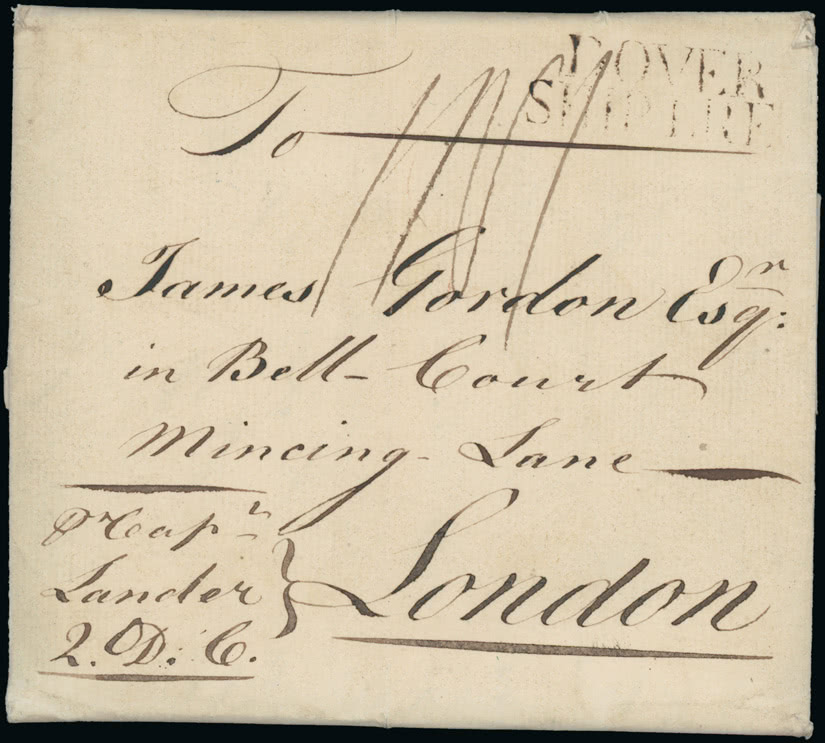 DOVER
SHIP LRE
To
James Gordon Esqr:
in Bell-Court
Mincing-Lane
pr Capn
Lander
2. D. C.
London